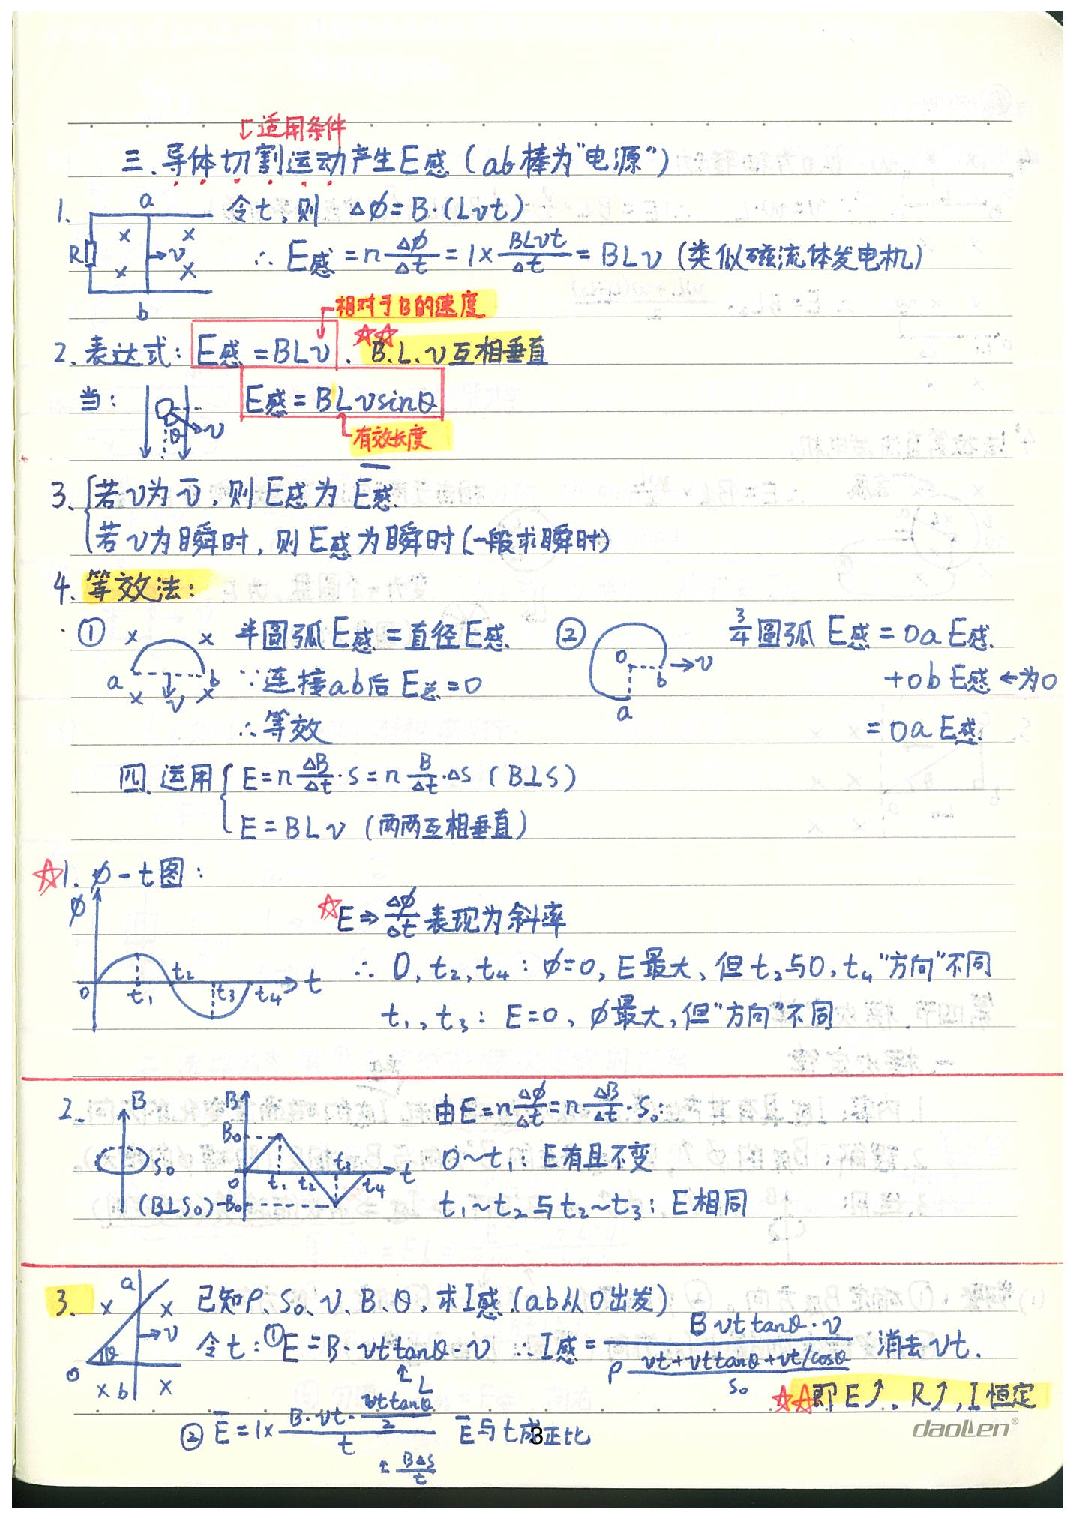 适用条件
三.导体切割运动产生E感(ab棒为"电源")
1. a R × × × × →v b 令t,则 Δφ=B·(Lvt)
∴ E感=n Δφ/Δt=1× BLvt/Δt=BLv (类似磁流体发电机)
相对于B的速度
2.表达式: E感=BLv. ☆☆ B.L.v互相垂直
当: θ v E感=BLvsinθ
有效长度
3. 若v为v̄,则E感为E̅感.
若v为瞬时,则E感为瞬时(一般求瞬时)
4. 等效法:
① × × a b × × v 半圆弧E感=直径E感.
∵连接ab后E总=0
∴等效
② o b →v a 3/4圆弧 E感=oa E感.
+ob E感←为0
=oa E感.
四.运用 E=n ΔB/Δt·S=n B/Δt·ΔS (B⊥S)
E=BLv (两两互相垂直)
☆1. φ-t图:
φ 0 t₁ t₂ t₃ t₄ t
☆E⇒Δφ/Δt表现为斜率
∴ 0, t₂, t₄: φ=0, E最大,但t₂与0,t₄"方向"不同
t₁, t₃: E=0, φ最大,但"方向"不同
2. B S₀ (B⊥S₀) B B₀ 0 -B₀ t₁ t₂ t₃ t₄ t
由E=n Δφ/Δt=n ΔB/Δt·S₀:
0~t₁: E有且不变
t₁~t₂与t₂~t₃: E相同
3. a × × →v θ o × b × 已知ρ.S₀.v.B.θ,求I感(ab从O出发)
令t:①E=B·vttanθ·v ∴I感= Bvttanθ·v / ρ (vt+vttanθ+vt/cosθ)/S₀ 消去vt.
L
☆☆即E↑.R↑,I恒定
② E̅=1× B·vt·vttanθ/2 / t E̅与t成正比
BΔS/t
3
daolen®